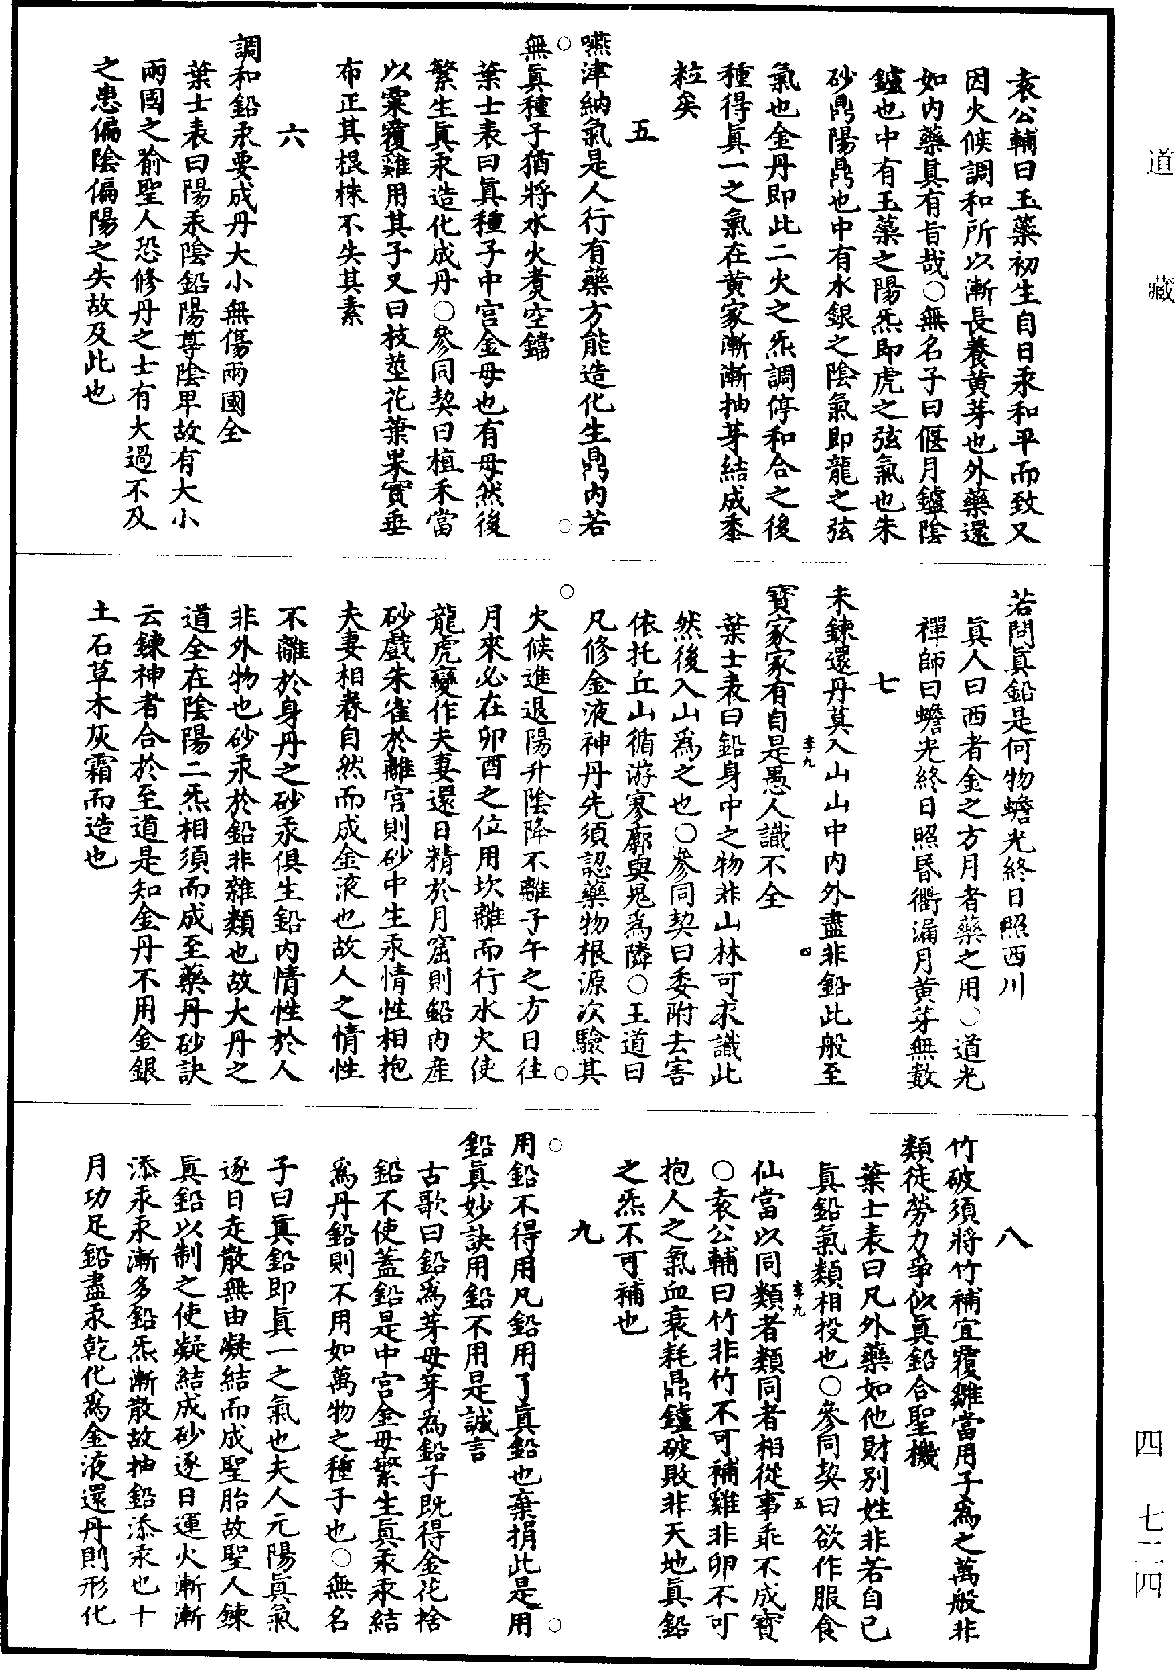 道藏
袁公輔曰玉藥初生自日汞和平而致又
因火候調和所以漸長養黄芽也外藥還
如内藥具有旨哉○無名子曰偃月鑪陰
鑪也中有玉藥之陽炁即虎之弦氣也朱
砂鼎陽鼎也中有水銀之陰氣即龍之弦
氣也金丹即此二火之炁調停和合之後
種得眞一之氣在黄家漸漸抽芽結成黍
粒矣
五
嚥津納氣是人行有藥方能造化生鼎内若
無眞種子猶將水火煑空鐺
葉士表曰眞種子中宫金母也有母然後
繁生眞汞造化成丹○參同契曰植禾當
以粟覆雞用其子又曰枝莖花葉果實垂
布正其根株不失其素
六
調和鉛汞要成丹大小無傷兩國全
葉士表曰陽汞陰鉛陽尊陰卑故有大小
兩國之喻聖人恐修丹之士有大過不及
之患偏陰偏陽之失故及此也
若問眞鉛是何物蟾光終日照西川
眞人曰西者金之方月者藥之用○道光
禪師曰蟾光終日照昏衢漏月黄芽無數
七
未鍊還丹莫入山山中内外盡非鉛此般至
寶家家有自是愚人識不全
葉士表曰鉛身中之物非山林可求識此
然後入山爲之也○參同契曰委附去害
依托丘山循游寥廓與鬼爲隣○王道曰
凡修金液神丹先須認藥物根源次驗其
火候進退陽升陰降不離子午之方日往
月來必在卯酉之位用坎離而行水火使
龍虎變作夫妻還日精於月窟則鉛内産
砂戲朱雀於離宫則砂中生汞情性相抱
夫妻相眷自然而成金液也故人之情性
不離於身丹之砂汞俱生鉛内情性於人
非外物也砂汞於鉛非雜類也故大丹之
道全在陰陽二炁相須而成至藥丹砂訣
云鍊神者合於至道是知金丹不用金銀
土石草木灰霜而造也
李九
四
八
竹破須將竹補宜覆雞當用子爲之萬般非
類徒勞力爭似眞鉛合聖機
葉士表曰凡外藥如他財别姓非若自已
眞鉛氣類相投也○參同契曰欲作服食
仙當以同類者類同者相從事乖不成寶
○袁公輔曰竹非竹不可補雞非卵不可
抱人之氣血衰耗鼎鑪破敗非天地眞鉛
之炁不可補也
李九
五
九
用鉛不得用凡鉛用了眞鉛也棄捐此是用
鉛眞妙訣用鉛不用是誠言
古歌曰鉛爲芽母芽爲鉛子既得金花捨
鉛不使蓋鉛是中宫金母繁生眞汞汞結
爲丹鉛則不用如萬物之種子也○無名
子曰眞鉛即眞一之氣也夫人元陽眞氣
逐日走散無由凝結而成聖胎故聖人鍊
眞鉛以制之使凝結成砂逐日運火漸漸
添汞汞漸多鉛炁漸散故抽鉛添汞也十
月功足鉛盡汞乾化爲金液還丹則形化
四 七二四